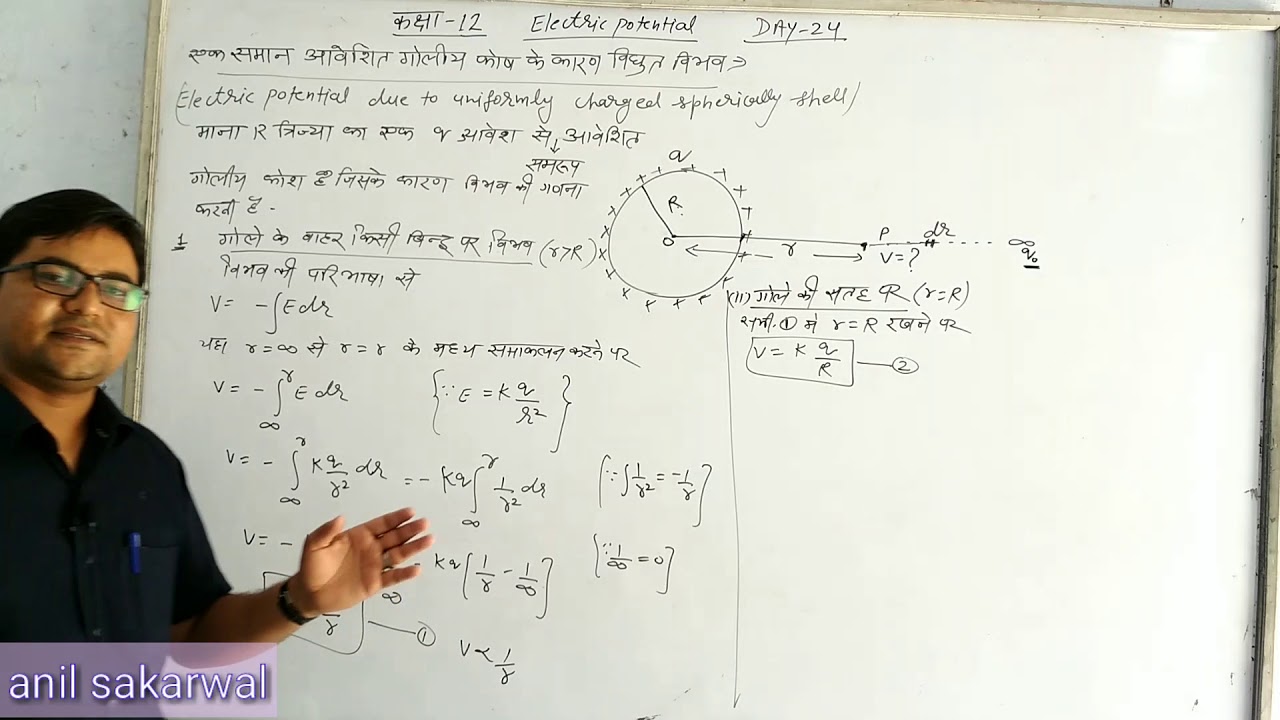 कक्षा-12 Electric potential DAY-24
एक समान आवेशित गोलीय कोष के कारण विधुत विभव ⇒
(Electric potential due to uniformly charged spherically shell)
माना R त्रिज्या का एक q आवेश से आवेशित
समरूप
गोलीय कोश है जिसके कारण विभव की गणना
करनी है -
1 गोले के बाहर किसी बिन्दु पर विभव (r>R)
विभव की परिभाषा से
V = -∫Edr
यहा r=∞ से r=r के मध्य समाकलन करने पर
V = -∫∞^r E dr {∵ E = K q/r²}
V = -∫∞^r K q/r² dr = -Kq ∫∞^r 1/r² dr {∵ ∫1/r² = -1/r}
V = -
Kq [1/r - 1/∞] {∵ 1/∞ = 0}
r ①
V ∝ 1/r
q
R
O
r
P
V=?
dr
∞
q₀
(II) गोले की सतह पर (r=R)
समी. ① में r=R रखने पर
V = K q/R ②
anil sakarwal